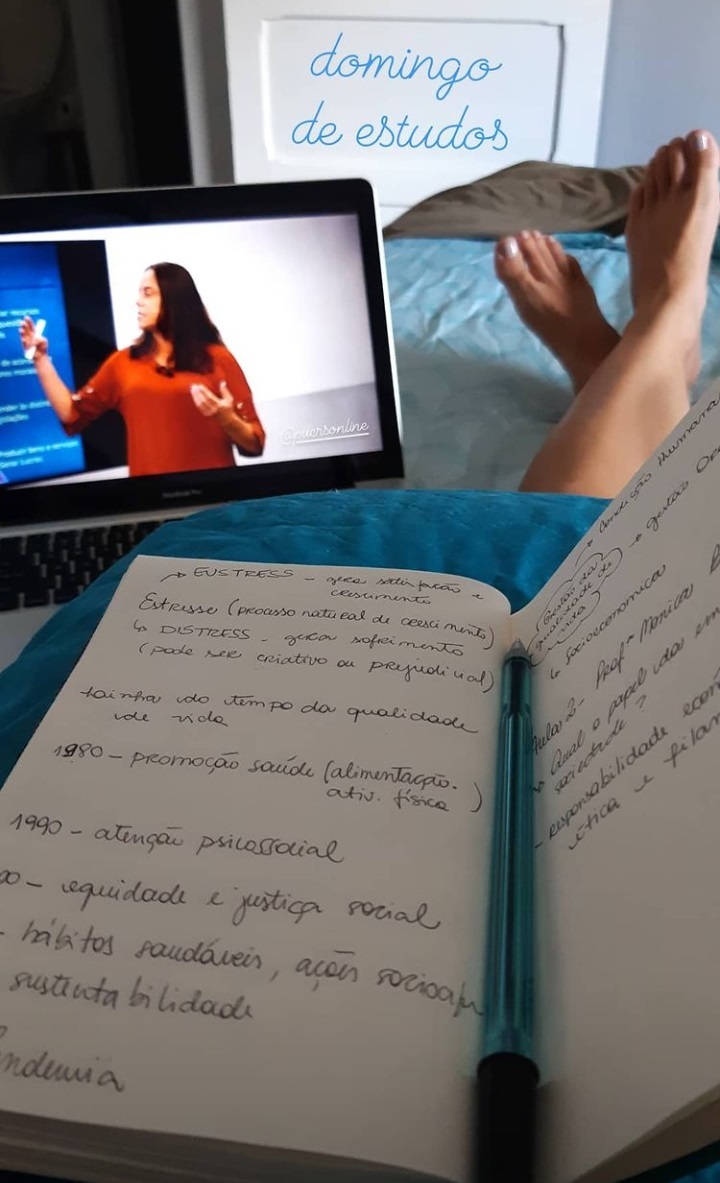 domingo
de estudos
@pucrsonline
MacBook Pro
→ EUSTRESS - gera satisfação e
crescimento
Estresse (processo natural de crescimento)
↳ DISTRESS - gera sofrimento
(pode ser criativo ou prejudicial)
do tempo da qualidade
de vida
1980 - promoção saúde (alimentação.
ativ. física)
1990 - atenção psicossocial
- equidade e justiça social
- hábitos saudáveis, ações
sustentabilidade
→ condição humana
Gestão da
qualidade de
vida
→ gestão
↳ socioeconômica
Aula 2 - Profª Monica
Qual o papel das
sociedade?
- responsabilidade
ética e